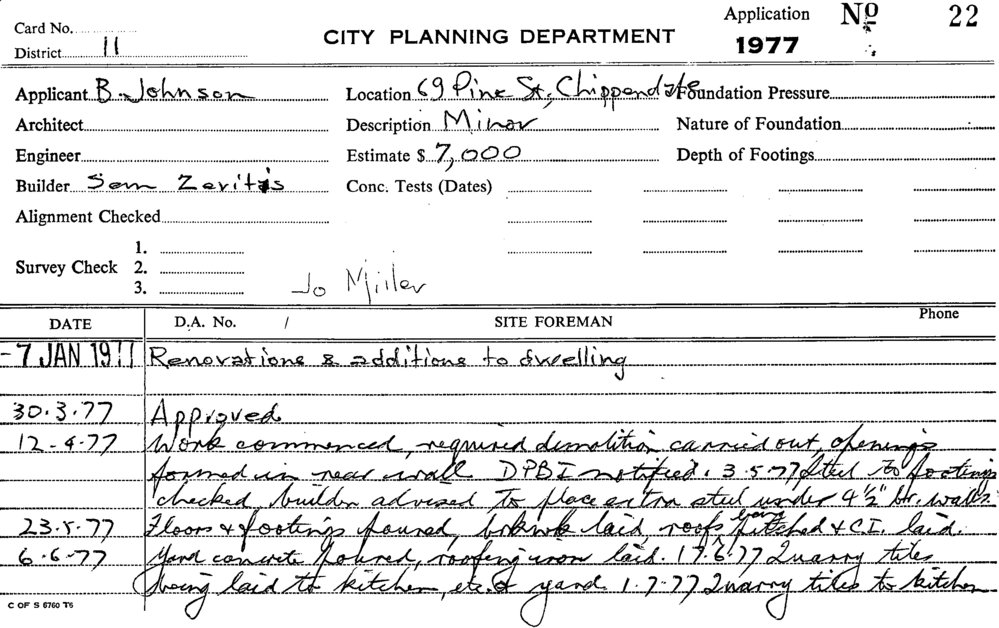 Card No.
District 11
CITY PLANNING DEPARTMENT
Application 1977
No 22
Applicant B. Johnson
Location 69 Pine St, Chippendale
Foundation Pressure
Architect
Description Minor
Nature of Foundation
Engineer
Estimate $ 7,000
Depth of Footings
Builder Sam Zeritis
Conc. Tests (Dates)
Alignment Checked
Survey Check 1. 2. 3.
Jo Miller
DATE D.A. No. / SITE FOREMAN Phone
-7 JAN 1977 Renovations & additions to dwelling
30.3.77 Approved
12-4-77 Work commenced, required demolition carried out, openings
formed in rear wall DPBI notified. 3.5.77 Steel to footings
checked builder advised to place extra steel under 4½" br. walls.
23.5.77 Floors & footings poured, brkwk laid, roofs pitched & C.I. laid.
6.6.77 Yard concrete poured, roofing iron laid. 17.6.77 Quarry tiles
being laid to kitchen, etc. & yard. 1.7.77 Quarry tiles to kitchen
C OF S 6760 T6